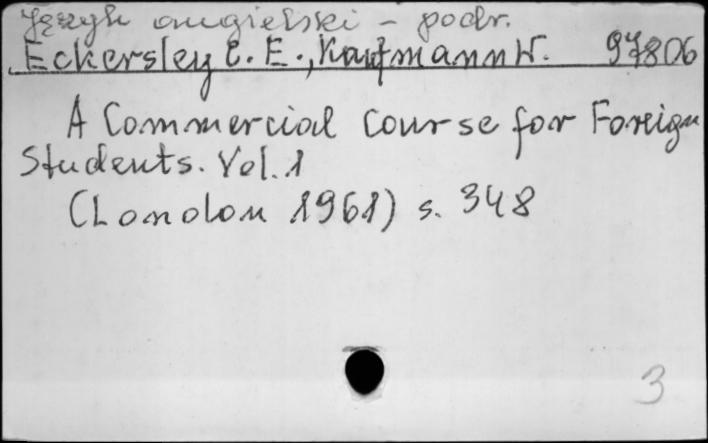 Język angielski - podr.
Eckersley C. E., Kaufmann W. 97806
A Commercial Course for Foreign
Students. Vol. 1
(London 1961) s. 348
3